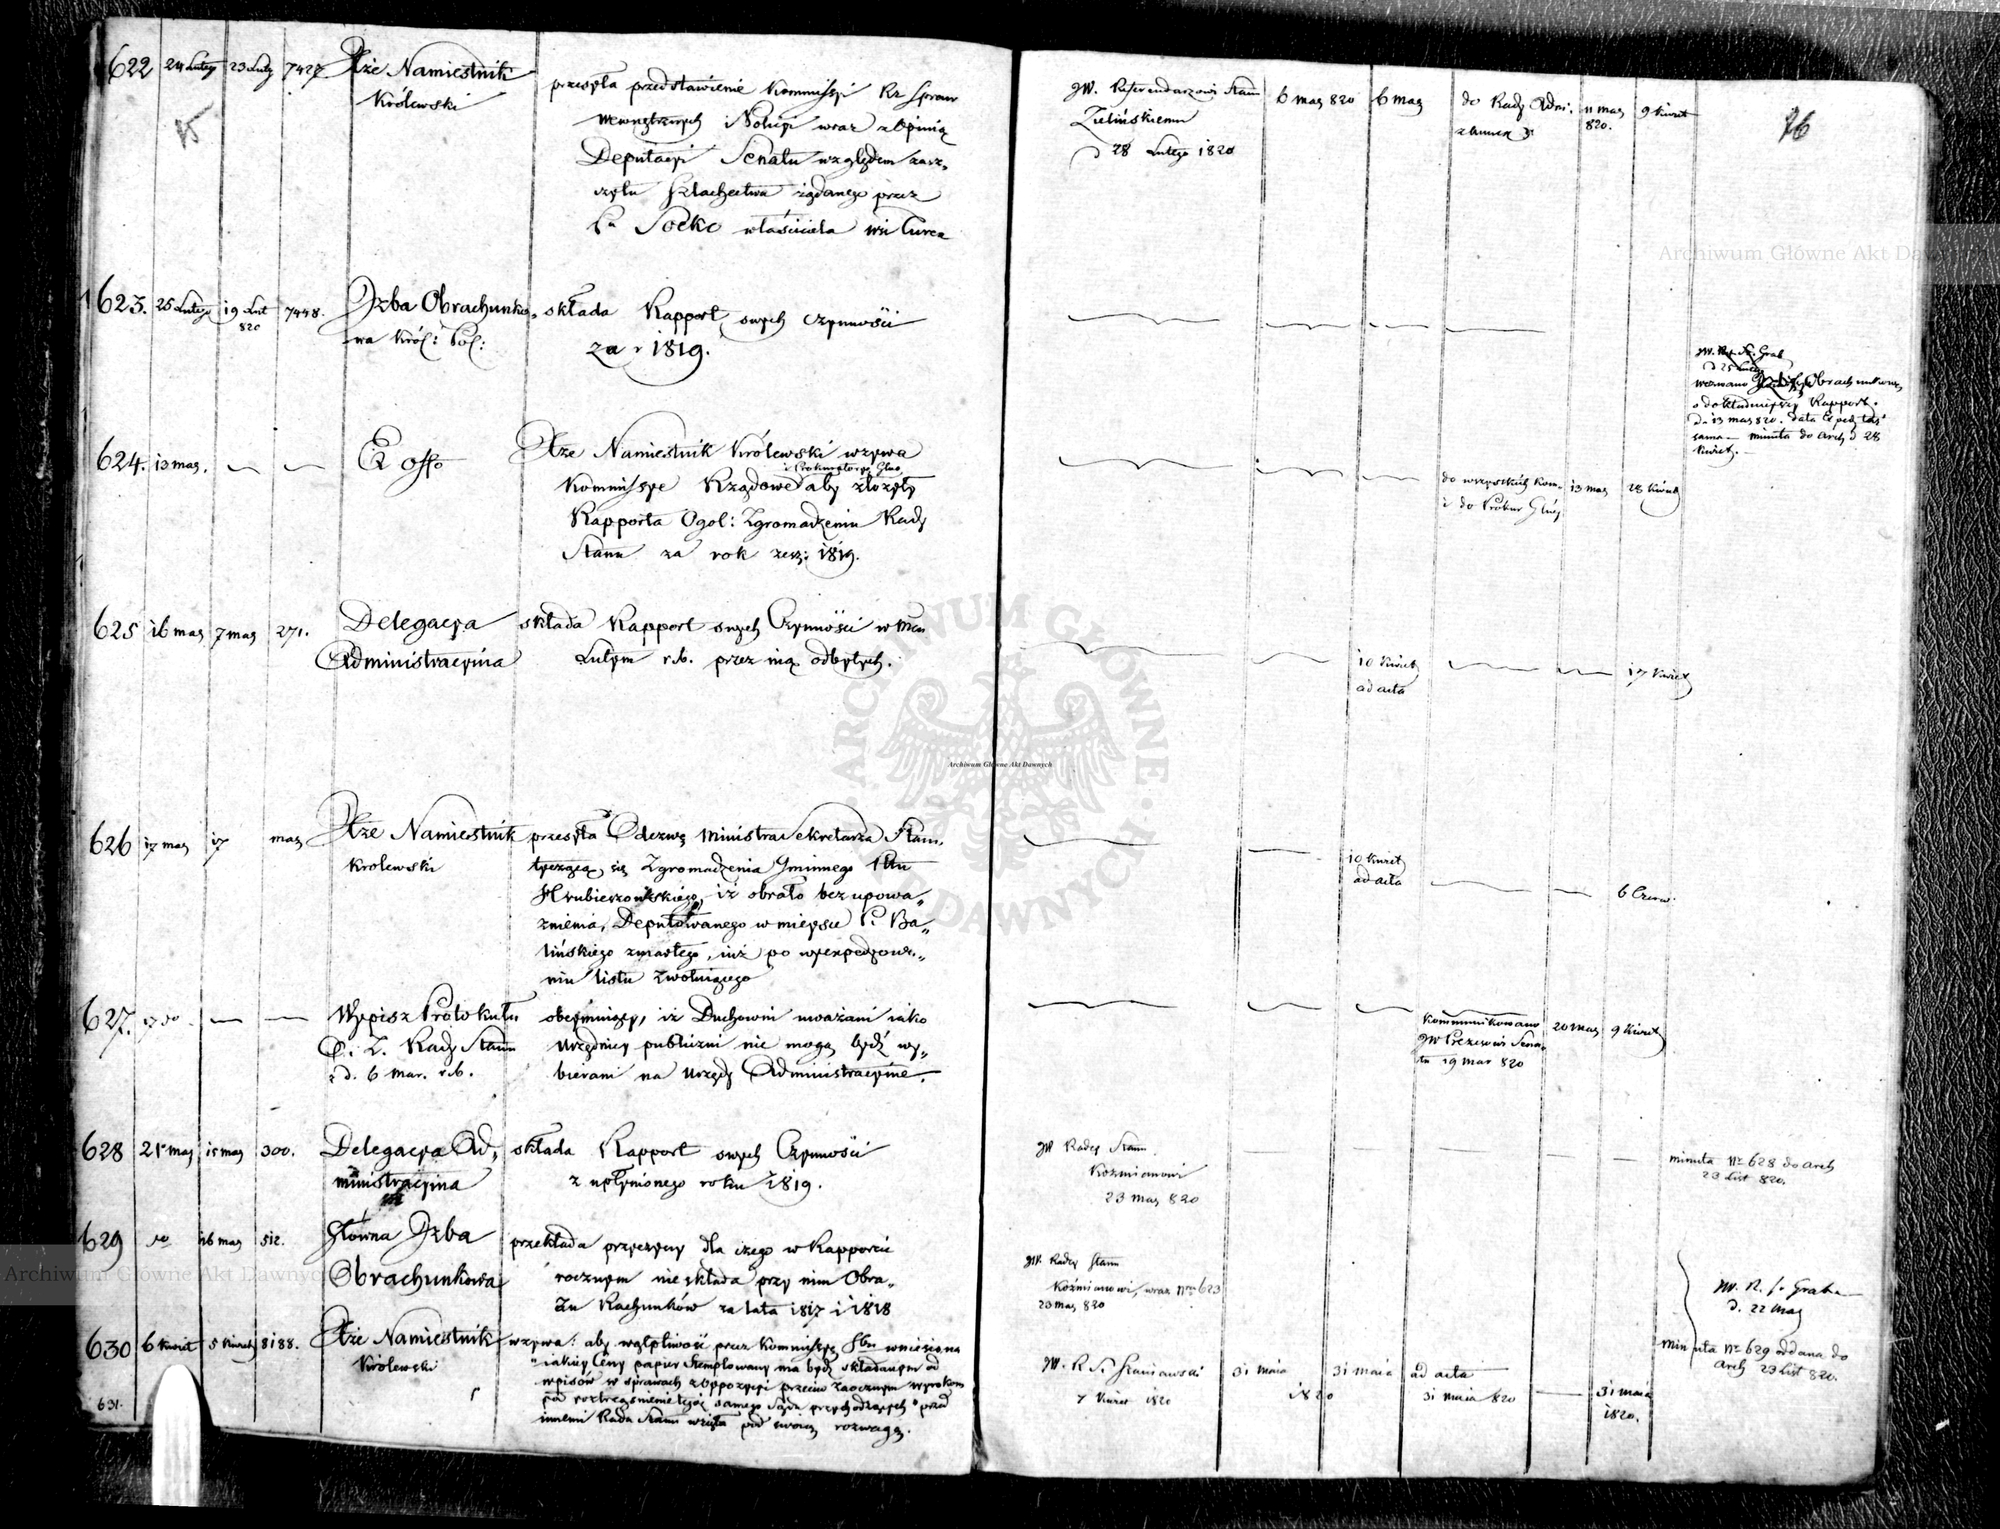 622 24 Lutego 23 Luty 7427 Xże Namiestnik
Królewski
przesyła przedstawienie Kommissyi Rz Spraw
Wewnętrznych i Policyi wraz z Opinią
Deputacyi Senatu względem zasz-
czytu Szlachectwa żądanego przez
Pa Socko właściciela wsi
JW. Referendarzowi Stanu
Zielińskiemu
d 28 Lutego 1820
6 mar 820 6 mar do Rady Admi. 11 mar
820. 9 Kwiet
76
623. 25 Lutego 19 Lut
820 7448. Izba Obrachunko-
wa Król: Pol:
składa Rapport swych czynności
za r 1819.
JW. R. St. Grab
d 25 Luteg
wezwano Obrachunkową
o dokładniejszy Rapport.
d. 13 mar 820. data Exped: taż
sama — minuta do Arch d 28
Kwiet. —
624. 13 mar. Ex offo
Xże Namiestnik Królewski wzywa
i Prokuratoryę Głów
Kommissye Rządowe aby złożyły
Rapporta Ogol: Zgromadzeniu Rady
Stanu za rok zesz: 1819.
do wszystkich Kom-
i do Prokur Głów 13 mar 28 Kwiet
625 16 mar 7 mar 271. Delegacya
Administracyina
składa Rapport swych Czynności w Mcu
Lutym r.b. przez nią odbytych.
10 Kwiet
ad acta 17 Kwiet
626 17 mar 17 mar Xże Namiestnik
Krolewski
przesyła Odezwę Ministra Sekretarza Stanu
tyczącą się Zgromadzenia Gminnego Pttu
Hrubieszowskiego, iż obrało bez upowa-
żnienia, Deputowanego w mieysce P. Ba-
lińskiego zmarłego, już po wyexpedyowa-
niu listu zwołuiącego
10 Kwiet
ad acta 6 Czerw.
627. 17 do Wypis z Protokułu
O. Z. Rady Stanu
z d. 6 mar. r.b.
obeymuiący, iż Duchowni uważani iako
urzędnicy publiczni nie mogą bydź wy-
bierani na urzędy Administracyine.
Kommunikowano
JW Prezesowi Sena-
tu 19 mar 820 20 mar 9 Kwiet
628 21 mar 15 mar 300. Delegacya Ad-
ministracyina
składa Rapport swych Czynności
z upłynionego roku 1819.
JW Radcy Stanu
Koźmianowi
23 mar 820
minuta Nro 628 do Arch
23 List 820.
629 do 16 mar 512. Główna Izba
Obrachunkowa
przekłada przyczyny dla czego w Rapporcie
rocznym nie składa przy nim Obra-
zu Rachunków za lata 1817 i 1818
JW. Radcy Stanu
Koźmianowi, wraz Nro 623
23 mar 820
JW. R. S. Grab
d. 22 Mar
minuta Nro 629 oddana do
Arch 23 List 820.
630 6 Kwiet 5 Kwiet 8188. Xże Namiestnik
Królewski
wzywa: aby wątpliwość przez Kommissyę Sbu wniesiona
"iakiey Ceny papier stemplowany ma bydź składanym od
wpisów w sprawach z Oppozycyi przeciw zaocznym wyrokom
pod rozstrzygnienie tegoż samego Sądu przychodzących" przed
innemi Rada Stanu wzięła pod swoią rozwagę.
JW. R. S. Staniawski
7 Kwiet 1820
31 Maia
1820 31 maia ad acta
31 maia 820 31 maia
1820.
631.
Archiwum Główne Akt Dawnych